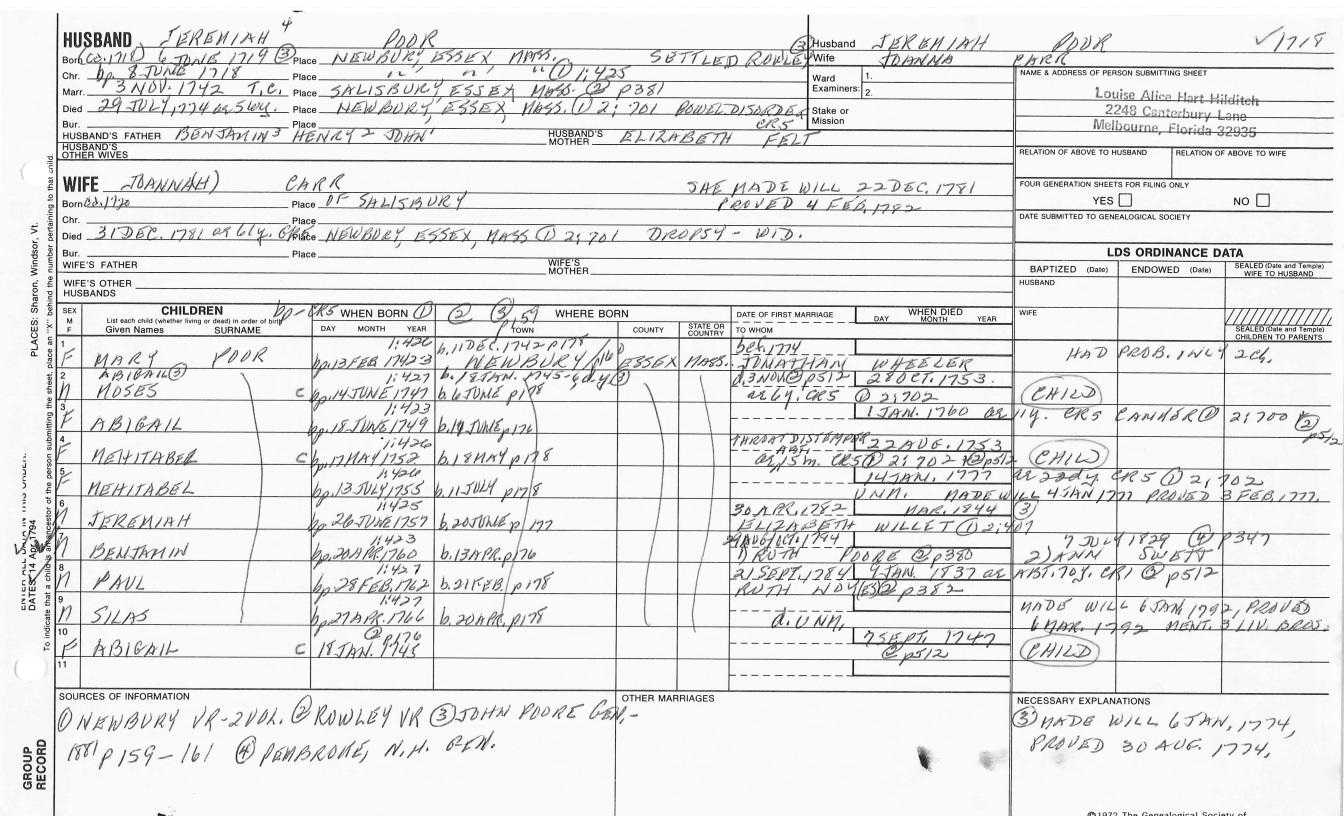 HUSBAND JEREMIAH 4 POOR
Born (ca. 1718) 6 JUNE 1719 ③ Place NEWBURY, ESSEX, MASS. SETTLED ROWLEY ③
Chr. bp. 8 JUNE 1718 Place " " " ① 1:425
Marr. 3 NOV. 1742 T.C. Place SALISBURY ESSEX MASS. ② p381
Died 29 JULY, 1774 Place NEWBURY, ESSEX, MASS. ① 2; 701 BOWEL DISORDER
Bur. Place CR5
HUSBAND'S FATHER BENJAMIN 3 HENRY 2 JOHN 1 HUSBAND'S MOTHER ELIZABETH FELT
HUSBAND'S OTHER WIVES
Husband JEREMIAH POOR ✓1718
Wife JOANNA CARR
Ward Examiners: 1.
2.
Stake or Mission
NAME & ADDRESS OF PERSON SUBMITTING SHEET
Louise Alice Hart Hilditch
2248 Canterbury Lane
Melbourne, Florida 32935
RELATION OF ABOVE TO HUSBAND RELATION OF ABOVE TO WIFE
FOUR GENERATION SHEETS FOR FILING ONLY
YES NO
DATE SUBMITTED TO GENEALOGICAL SOCIETY
WIFE JOANNA(H) CARR SHE MADE WILL 22 DEC. 1781
Born ca. 1720 Place OF SALISBURY PROVED 4 FEB. 1782
Chr. Place
Died 31 DEC. 1781 ag 61y. CR5 Place NEWBURY, ESSEX, MASS ① 2; 701 DROPSY - WID.
Bur. Place
WIFE'S FATHER WIFE'S MOTHER
WIFE'S OTHER HUSBANDS
LDS ORDINANCE DATA
BAPTIZED (Date) ENDOWED (Date) SEALED (Date and Temple) WIFE TO HUSBAND
HUSBAND
WIFE
SEALED (Date and Temple) CHILDREN TO PARENTS
SEX M F CHILDREN bp-CR5 WHEN BORN ① ② ③ p159 WHERE BORN DATE OF FIRST MARRIAGE WHEN DIED
List each child (whether living or dead) in order of birth
Given Names SURNAME DAY MONTH YEAR TOWN COUNTY STATE OR COUNTRY TO WHOM DAY MONTH YEAR
1 1:426 b. 11 DEC. 1742 p178 bef. 1774
F MARY POOR bp. 13 FEB 1742-3 NEWBURY ESSEX MASS. JONATHAN WHEELER HAD PROB. ONLY 2 ch.
2 ABIGAIL ③ 1:427 b. 18 JAN. 1745-6 d.y. ③ d. 3 NOV ② p512 28 OCT. 1753.
M MOSES C bp. 14 JUNE 1747 b. 6 JUNE p178 ag 6y. CR5 ① 2; 702 CHILD
3 1:423 1 JAN. 1760 ag 11y. CR5 CANKER ① 2; 700 ② p512
F ABIGAIL bp. 18 JUNE 1749 b. 19 JUNE p176
4 1:426 THROAT DISTEMPER 22 AUG. 1753
F MEHITABEL C bp. 17 MAY 1752 b. 18 MAY p178 ABT. ag 15 m. CR5 ① 2; 702 ② p512 CHILD
5 1:426 14 JAN. 1777 ag 22dy. CR5 ① 2, 702
F MEHITABEL bp. 13 JULY 1755 b. 11 JULY p178 UNM. MADE WILL 4 JAN 1777 PROVED 3 FEB. 1777.
6 1:425 30 APR. 1782 MAR. 1844 ③
M JEREMIAH bp. 26 JUNE 1757 b. 20 JUNE p177 ELIZABETH WILLET ① 2; 407
1:423 7 JULY 1829 ④ p347
M BENJAMIN bp. 20 APR. 1760 b. 13 APR. p176 1) RUTH POORE ② p380 2) ANN SWETT
8 1:427 21 SEPT. 1784 9 JAN. 1837 ag ABT. 70y. CR1 ② p512
M PAUL bp. 28 FEB. 1762 b. 21 FEB. p178 RUTH ② p382
9 1:427 MADE WILL 6 JAN, 1792, PROVED
M SILAS bp. 27 APR. 1766 b. 20 APR. p178 d. UNM. 6 MAR. 1792 MENT. 3 LIV. BROS.
10 ② p176 7 SEPT. 1747
F ABIGAIL C 18 JAN. 1745 ② p512 CHILD
11
SOURCES OF INFORMATION
① NEWBURY VR-2 VOL. ② ROWLEY VR ③ JOHN POORE GEN.-
1881 p 159-161 ④ PEMBROKE, N.H. GEN.
OTHER MARRIAGES
NECESSARY EXPLANATIONS
③ MADE WILL 6 JAN, 1774,
PROVED 30 AUG. 1774,
©1972 The Genealogical Society of
PLACES: Sharon, Windsor, Vt.
ENTER ALL DATA IN THIS ORDER:
DATES: 14 Apr 1794
To indicate that a child is an ancestor of the person submitting the sheet, place an "X" behind the number pertaining to that child.
GROUP RECORD